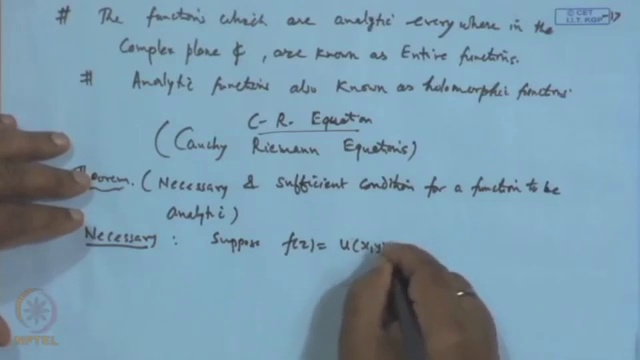 # The functions which are analytic everywhere in the
Complex plane ₵, are known as Entire functions.
# Analytic functions also known as holomorphic functions.
C-R. Equation
(Cauchy Riemann Equations)
Theorem. (Necessary & sufficient condition for a function to be
analytic)
Necessary : Suppose f(z) = u(x,y)
© CET
I.I.T. KGP
NPTEL